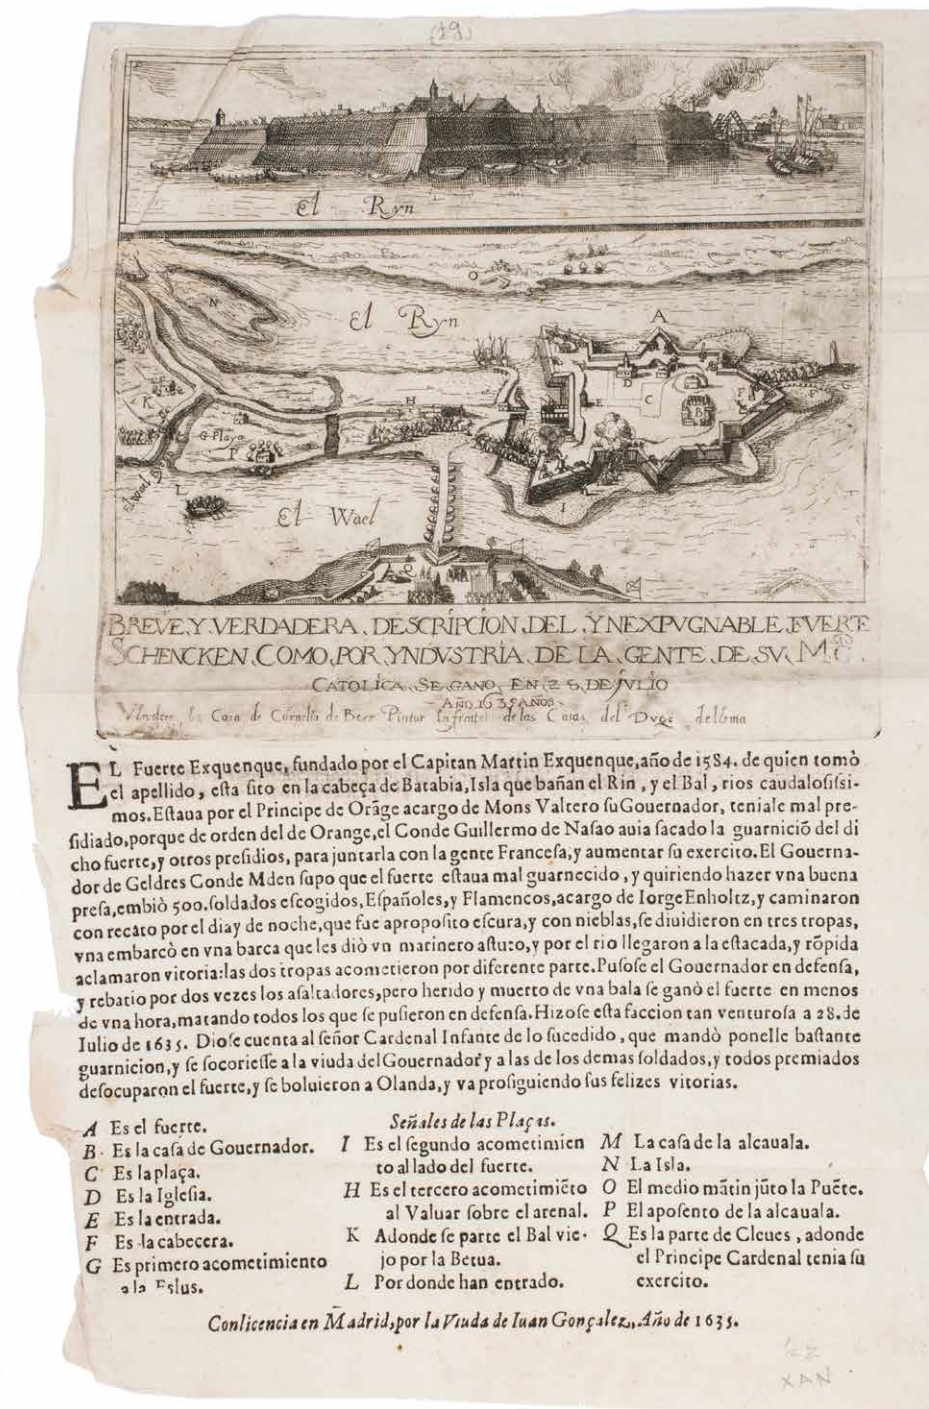 (19)
El Ryn
El Ryn
N
O
A
K
H
G Playa
P
D
E
C
B
F
G
L
El Wael
I
Q
BREVE, Y VERDADERA, DESCRIPCION, DEL, YNEXPVGNABLE, FVERTE
SCHENCKEN, COMO, POR, YNDVSTRIA, DE LA, GENTE, DE SV, M.
CATOLICA, SE GANO, EN 28, DE JVLIO
AÑO 1635 AÑOS
Casa de Cornelis de Beer Pintur Enfrente de las Casas del Duqe de lerma
EL Fuerte Exquenque, fundado por el Capitan Martin Exquenque, año de 1584. de quien tomò
el apellido, esta sito en la cabeça de Batabia, Isla que bañan el Rin, y el Bal, rios caudalosissi-
mos. Estaua por el Principe de Orãge acargo de Mons Valtero su Gouernador, teniale mal pre-
sidiado, porque de orden del de Orange, el Conde Guillermo de Nasao auia sacado la guarniciõ del di
cho fuerte, y otros presidios, para juntarla con la gente Francesa, y aumentar su exercito. El Gouerna-
dor de Geldres Conde Mden supo que el fuerte estaua mal guarnecido, y quiriendo hazer vna buena
presa, embiò 500. soldados escogidos, Españoles, y Flamencos, acargo de Iorge Enholtz, y caminaron
con recàto por el dia y de noche, que fue aproposito escura, y con nieblas, se diuidieron en tres tropas,
vna embarcò en vna barca que les diò vn marinero astuto, y por el rio llegaron a la estacada, y rõpida
aclamaron vitoria: las dos tropas acometieron por diferente parte. Pusose el Gouernador en defensa,
y rebatio por dos vezes los asaltadores, pero herido y muerto de vna bala se ganò el fuerte en menos
de vna hora, matando todos los que se pusieron en defensa. Hizose esta faccion tan venturosa a 28. de
Iulio de 1635. Diose cuenta al señor Cardenal Infante de lo sucedido, que mandò ponelle bastante
guarnicion, y se socoriesse a la viuda del Gouernador y a las de los demas soldados, y todos premiados
desocuparon el fuerte, y se boluieron a Olanda, y va prosiguiendo sus felizes vitorias.
Señales de las Plaças.
A Es el fuerte.
B Es la casa de Gouernador.
C Es la plaça.
D Es la Iglesia.
E Es la entrada.
F Es la cabecera.
G Es primero acometimiento
a la Eslus.
I Es el segundo acometimien
to al lado del fuerte.
H Es el tercero acometimiẽto
al Valuar sobre el arenal.
K Adonde se parte el Bal vie-
jo por la Betua.
L Por donde han entrado.
M La casa de la alcauala.
N La Isla.
O El medio mãtin jũto la Puẽte.
P El aposento de la alcauala.
Q Es la parte de Cleues, adonde
el Principe Cardenal tenia su
exercito.
Con licencia en Madrid, por la Viuda de Iuan Gonçalez, Año de 1635.
XAN